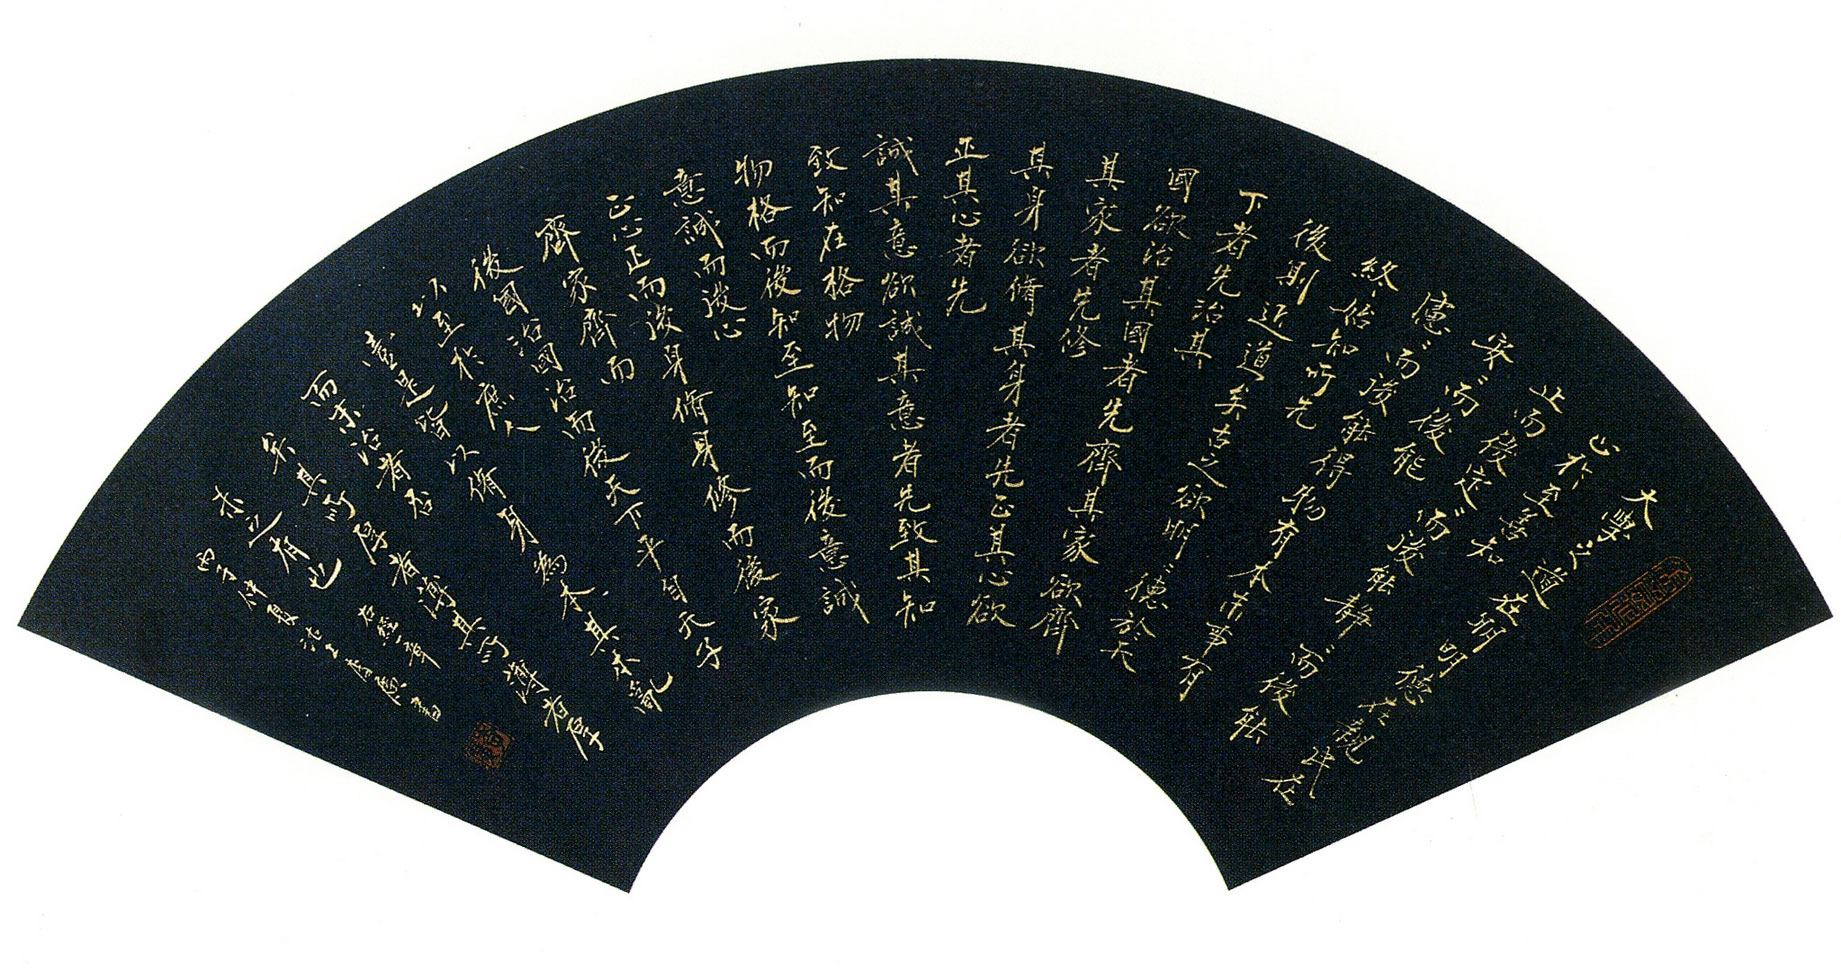 大學之道在明明德在親民在
止於至善知
止而後定〻而後能靜〻而後能
安〻而後能
慮〻而後能得物有本末事有
終始知所先
後則近道矣古之欲明〻德於天
下者先治其
國欲治其國者先齊其家欲齊
其家者先修
其身欲脩其身者先正其心欲
正其心者先
誠其意欲誠其意者先致其知
致知在格物
物格而後知至知至而後意誠
意誠而後心
正心正而後身脩身修而後家
齊家齊而
後國治國治而後天下平自天子
以至於庶人
壹是皆以脩身為本其本亂
而末治者否
矣其所厚者薄其所薄者厚
未之有也 右經章
丙子仲夏沽上書